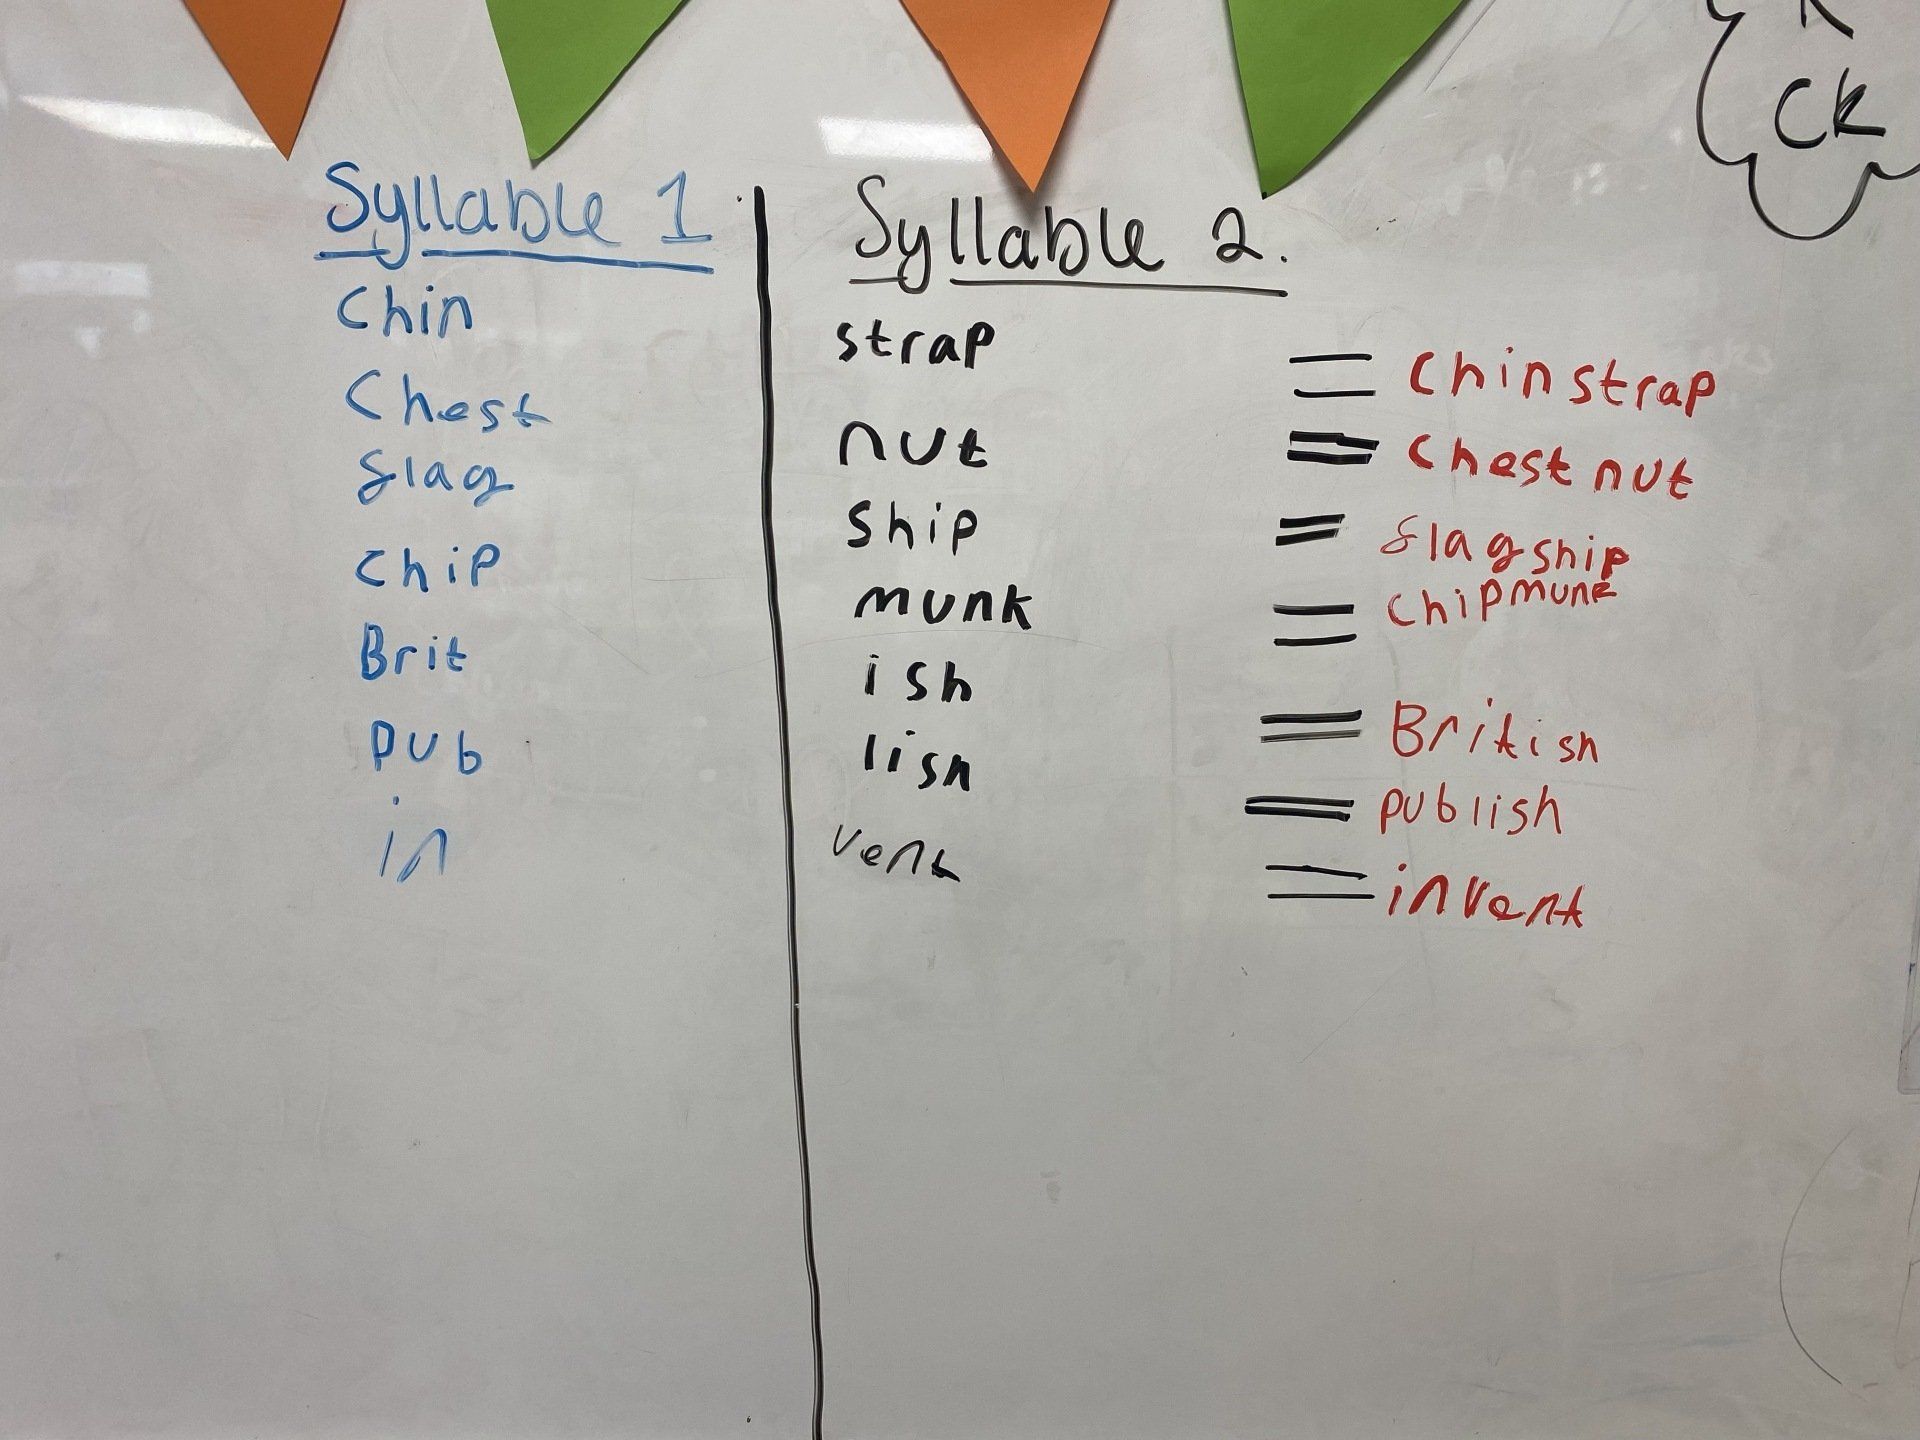 CK
Syllable 1 Syllable 2.
Chin strap = Chinstrap
Chest nut = Chestnut
flag ship = flagship
Chip munk = Chipmunk
Brit ish = British
pub lish = publish
in vent = invent